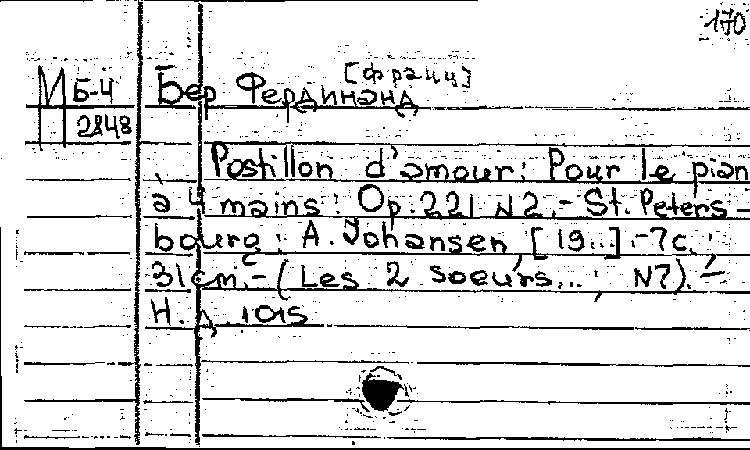 170
М Б-4
2848
Бер Фердинанд [франц]
Postillon d'amour: Pour le pian
à 4 mains: Op.221 N2.- St. Peters-
bourg: A. Johansen, [19..].-7с.;
31 cm.- (Les 2 soeurs...; N7).-
Н. д. 1015